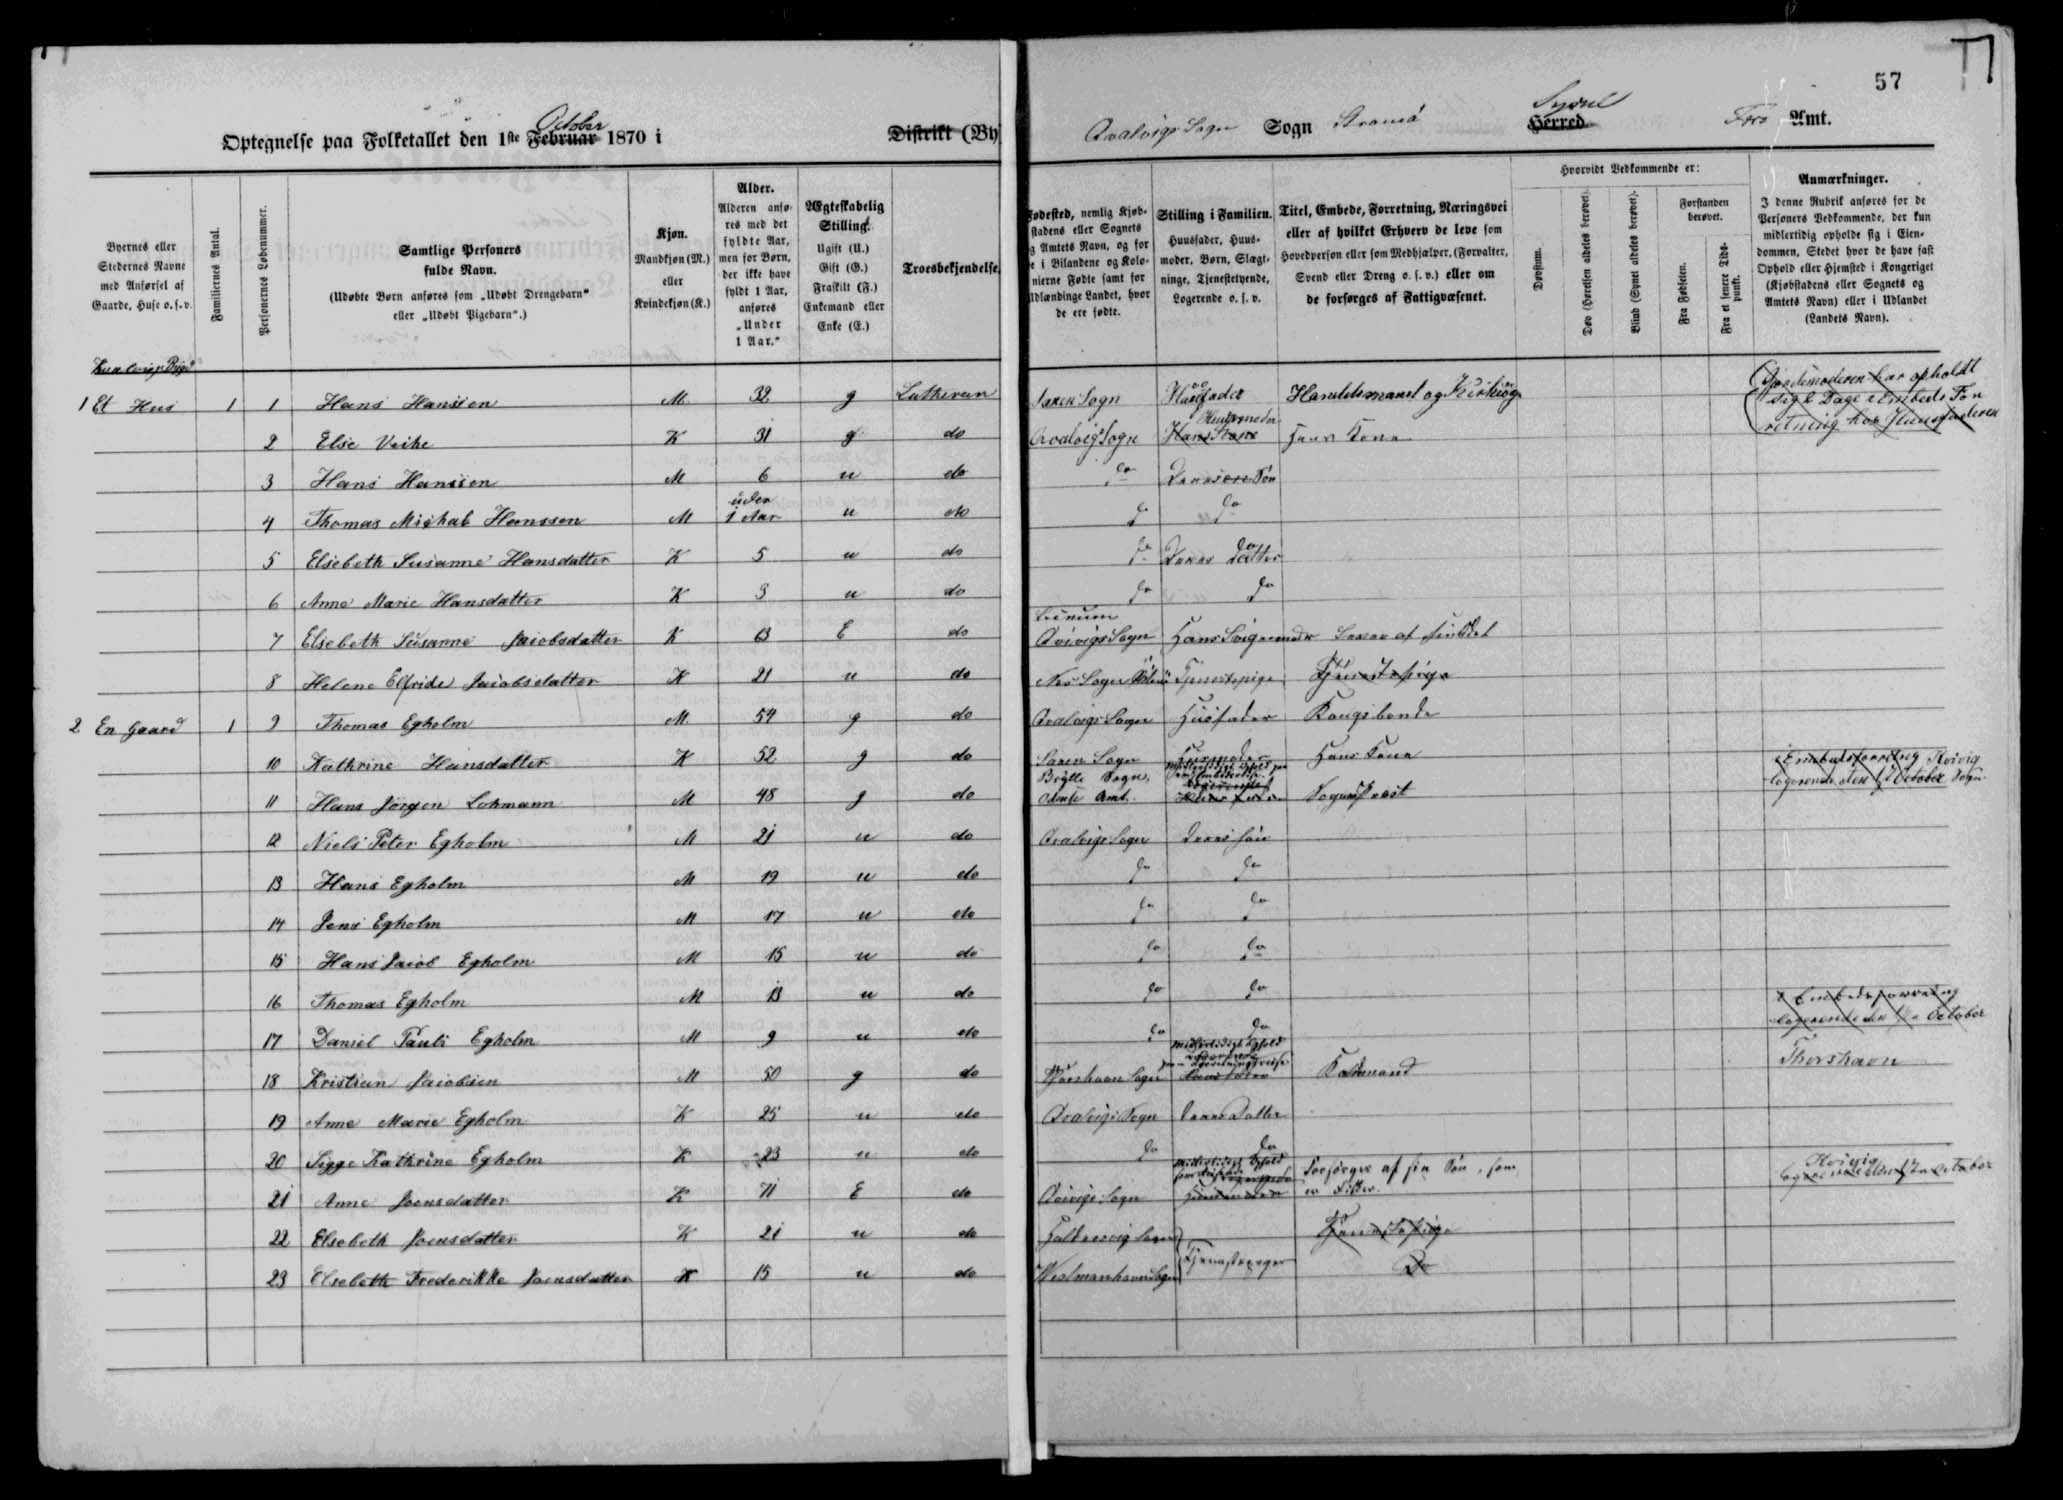 57
Optegnelse paa Folketallet den 1ste Februar October 1870 i Distrikt (By
Qvalvigs Sogn Sogn Stromö Herred Syssel Færø Amt.
Byernes eller Stedernes Navne med Anførsel af Gaarde, Huse o. s. v.
Familiernes Antal.
Personernes Løbenummer.
Samtlige Personers fulde Navn.
(Udøbte Børn anføres som „Udøbt Drengebarn“ eller „Udøbt Pigebarn“.)
Kjøn.
Mandkjøn (M.) eller Kvindekjøn (K.)
Alder.
Alderen anføres med det fyldte Aar, men for Børn, der ikke have fyldt 1 Aar, anføres „Under 1 Aar.“
Ægteskabelig Stilling.
Ugift (U.) Gift (G.) Fraskilt (F.) Enkemand eller Enke (E.)
Troesbekjendelse.
Fødested, nemlig Kjøbstadens eller Sognets og Amtets Navn, og for de i Bilandene og Kolonierne Fødte samt for Udlændinge Landet, hvor de ere fødte.
Stilling i Familien.
Huusfader, Huusmoder, Børn, Slægtninge, Tjenestetyende, Logerende o. s. v.
Titel, Embede, Forretning, Næringsvei eller af hvilket Erhverv de leve som Hovedperson eller som Medhjælper, (Forvalter, Svend eller Dreng o. s. v.) eller om de forsørges af Fattigvæsenet.
Hvorvidt Vedkommende er:
Døvstum.
Døv (Hørelsen aldeles berøvet).
Blind (Synet aldeles berøvet).
Forstanden berøvet.
Fra Fødselen.
Fra et senere Tidspunkt.
Anmærkninger.
I denne Rubrik anføres for de Personers Vedkommende, der kun midlertidig opholde sig i Eiendommen, Stedet hvor de have fast Ophold eller Hjemsted i Kongeriget (Kjøbstadens eller Sognets og Amtets Navn) eller i Udlandet (Landets Navn).
1 Et Hus 1 1 Hans Hanssen M 32 g Lutheran Saxen Sogn Husfader Handelsmand og
Jordemoderen har opholdt sig 2 Dage i Embeds Forretning hos Huusfaderen
2 Else Veihe K 31 g do Qvalvigs Sogn Huusmoder Hans Kone
3 Hans Hanssen M 6 u do do Deres Søn
4 Thomas Michal Hanssen M under 1 Aar u do do do
5 Elsebeth Susanne Hansdatter K 5 u do do Deres Datter
6 Anne Marie Hansdatter K 3 u do do do
7 Elsebeth Susanne Jacobsdatter K 63 E do Qvivigs Sogn Hans Svigermoder
8 Helene Elfride Jacobsdatter K 21 u do Nes Sogn Tjenestepige Tjenestepige
2 En Gaard 1 9 Thomas Egholm M 54 g do Qvalvigs Sogn Husfader Kongsbonde
10 Kathrine Hansdatter K 52 g do Saxen Sogn Husmoder Hans Kone
11 Hans Jørgen Lohmann M 48 g do Sogn, Odense Amt. Logerende Sognepræst
i Embedsforretning Kvivig
logerende den 1 October Sogn
12 Niels Peter Egholm M 21 u do Qvalvigs Sogn Deres Søn
13 Hans Egholm M 19 u do do do
14 Jens Egholm M 17 u do do do
15 Hans Jacob Egholm M 15 u do do do
16 Thomas Egholm M 13 u do do do
17 Daniel Pauli Egholm M 9 u do do do
i Embedsforretning
logerende den 1 October
18 Kristian Jacobsen M 50 g do Thorshavn Sogn Midlertidigt Ophold Thorshavn
19 Anne Marie Egholm K 25 u do Qvalvigs Sogn Deres Datter
20 Sigge Kathrine Egholm K 23 u do do do
21 Anne Joensdatter K 71 E do Qvivigs Sogn Midlertidigt Ophold Forsørges af sin Søn, som er Fisker.
Kvivig
22 Elsebeth Joensdatter K 21 u do Haldersvig Sogn Tjenestepige
23 Elsebeth Frederikke Joensdatter K 15 u do Westmanhavn Sogn Tjenestepiger Do